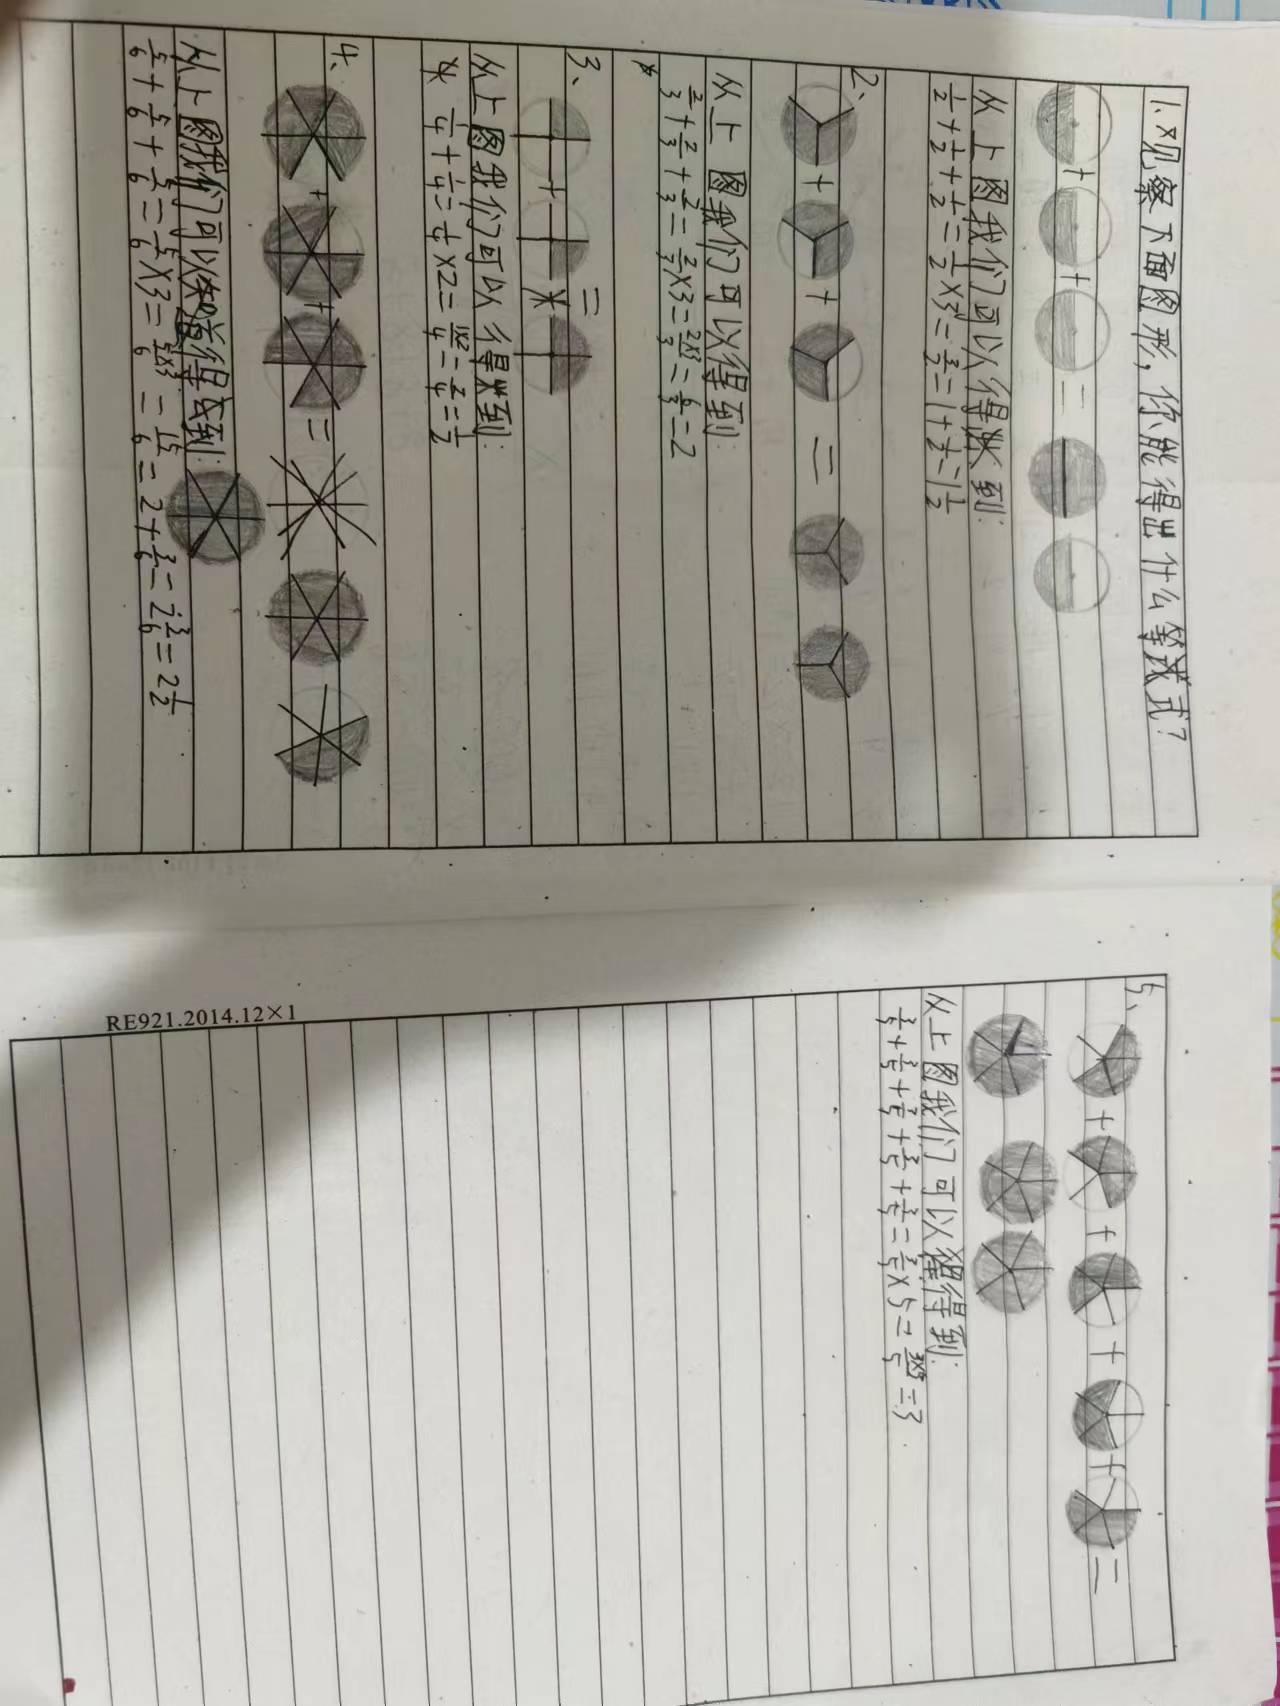 1.观察下面图形,你能得出什么等式?
+ + =
从上图我们可以得到:
1/2+1/2+1/2=1/2×3=3/2=1+1/2=1 1/2
2、
+ + =
从上图我们可以得到:
2/3+2/3+2/3=2/3×3=2×3/3=6/3=2
3、
+ =
从上图我们可以得到:
1/4+1/4=1/4×2=1×2/4=2/4=1/2
4、
+ + =
从上图我们可以得到:
5/6+5/6+5/6=5/6×3=5×3/6=15/6=2+3/6=2 3/6=2 1/2
5、
+ + + + =
从上图我们可以得到:
3/5+3/5+3/5+3/5+3/5=3/5×5=3×5/5=3
RE921.2014.12×1